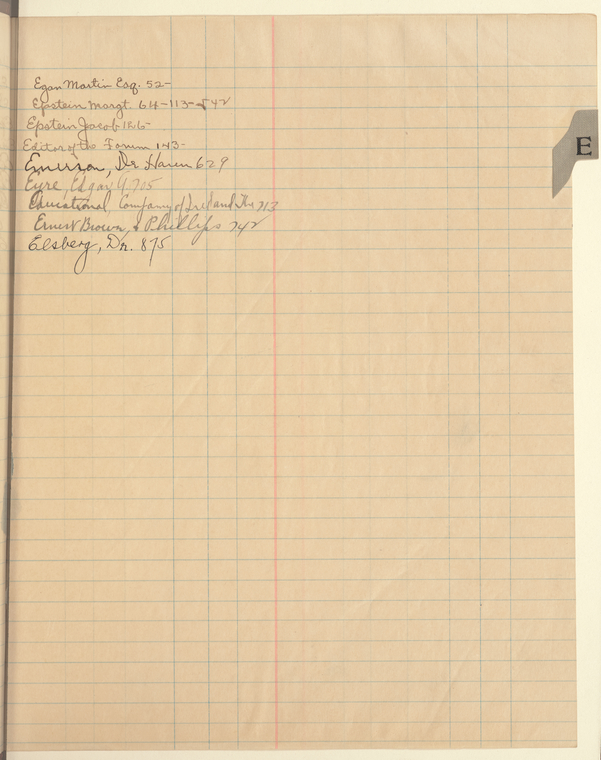 Egan Martin Esq. 52-
Epstein Margt. 64-113-542
Epstein Jacob 126-
Editor of the Forum 143-
Emerson, Dr. Haven 629
Eyre, Edgar Y. 705
Educational Company of Ireland The 713
Ernest Brown, & Phillips 742
Elsberg, Dr. 875
E